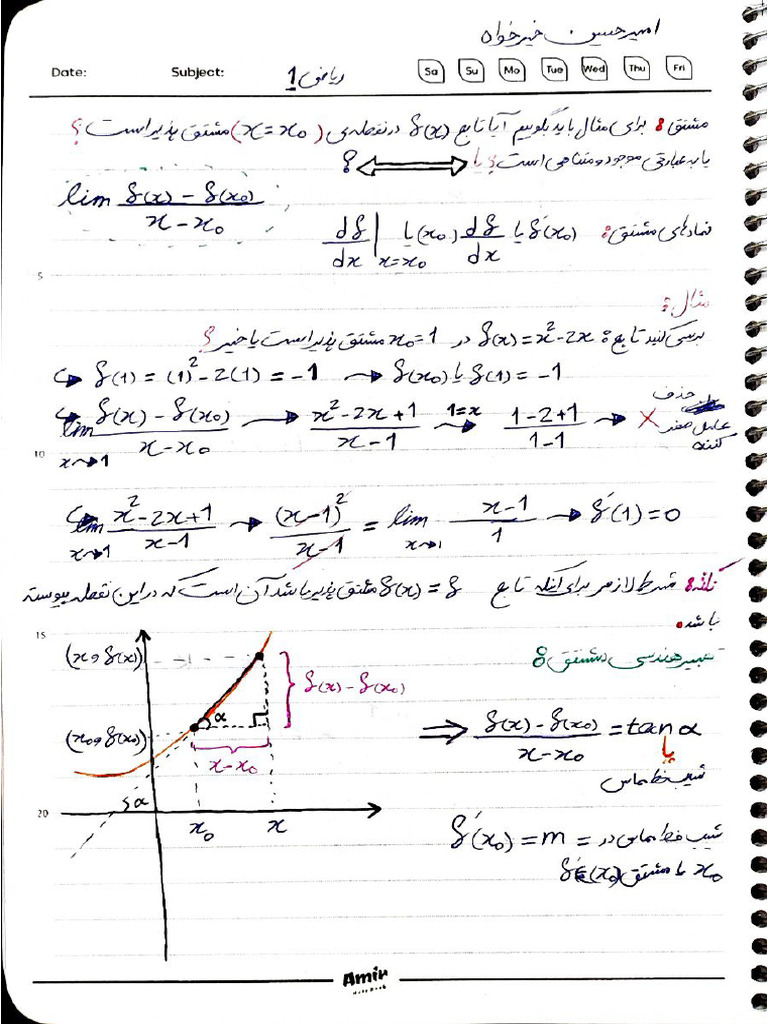 امیرحسین خیرخواه
Date: Subject: ریاضی 1 Sa Su Mo Tue Wed Thu Fri
مشتق: برای مثال باید بگوییم آیا تابع f(x) در نقطه‌ی (x=x₀) مشتق پذیر است؟
یا به عبارتی موجود و متناهی است؟ یا ⟺ ؟
lim (f(x) - f(x₀))/(x - x₀)
نمادهای مشتق: f'(x₀) یا df/dx (x₀) یا df/dx |x=x₀
5
مثال:
بررسی کنید تابع: f(x) = x²-2x در x₀=1 مشتق پذیر است یا خیر؟
↪ f(1) = (1)² - 2(1) = -1 → f(x₀) یا f(1) = -1
↪ lim x→1 (f(x) - f(x₀))/(x - x₀) → (x²-2x+1)/(x-1) 1=x → (1-2+1)/(1-1) → × حذف عامل صفر کننده
10
↪ lim x→1 (x²-2x+1)/(x-1) → (x-1)²/(x-1) = lim x→1 (x-1)/1 → f'(1) = 0
نکته: شرط لازم برای اینکه تابع f = f(x) مشتق پذیر باشد آن است که در این نقطه پیوسته
باشد.
15
تعبیر هندسی مشتق:
(x و f(x))
f(x) - f(x₀)
α
(x₀ و f(x₀))
x - x₀
⟹ (f(x) - f(x₀))/(x - x₀) = tan α
یا
شیب خط مماس
α
20
x₀ x
f'(x₀) = m = شیب خط مماس در
x₀ یا مشتق f'(x₀)
Amir
notebook